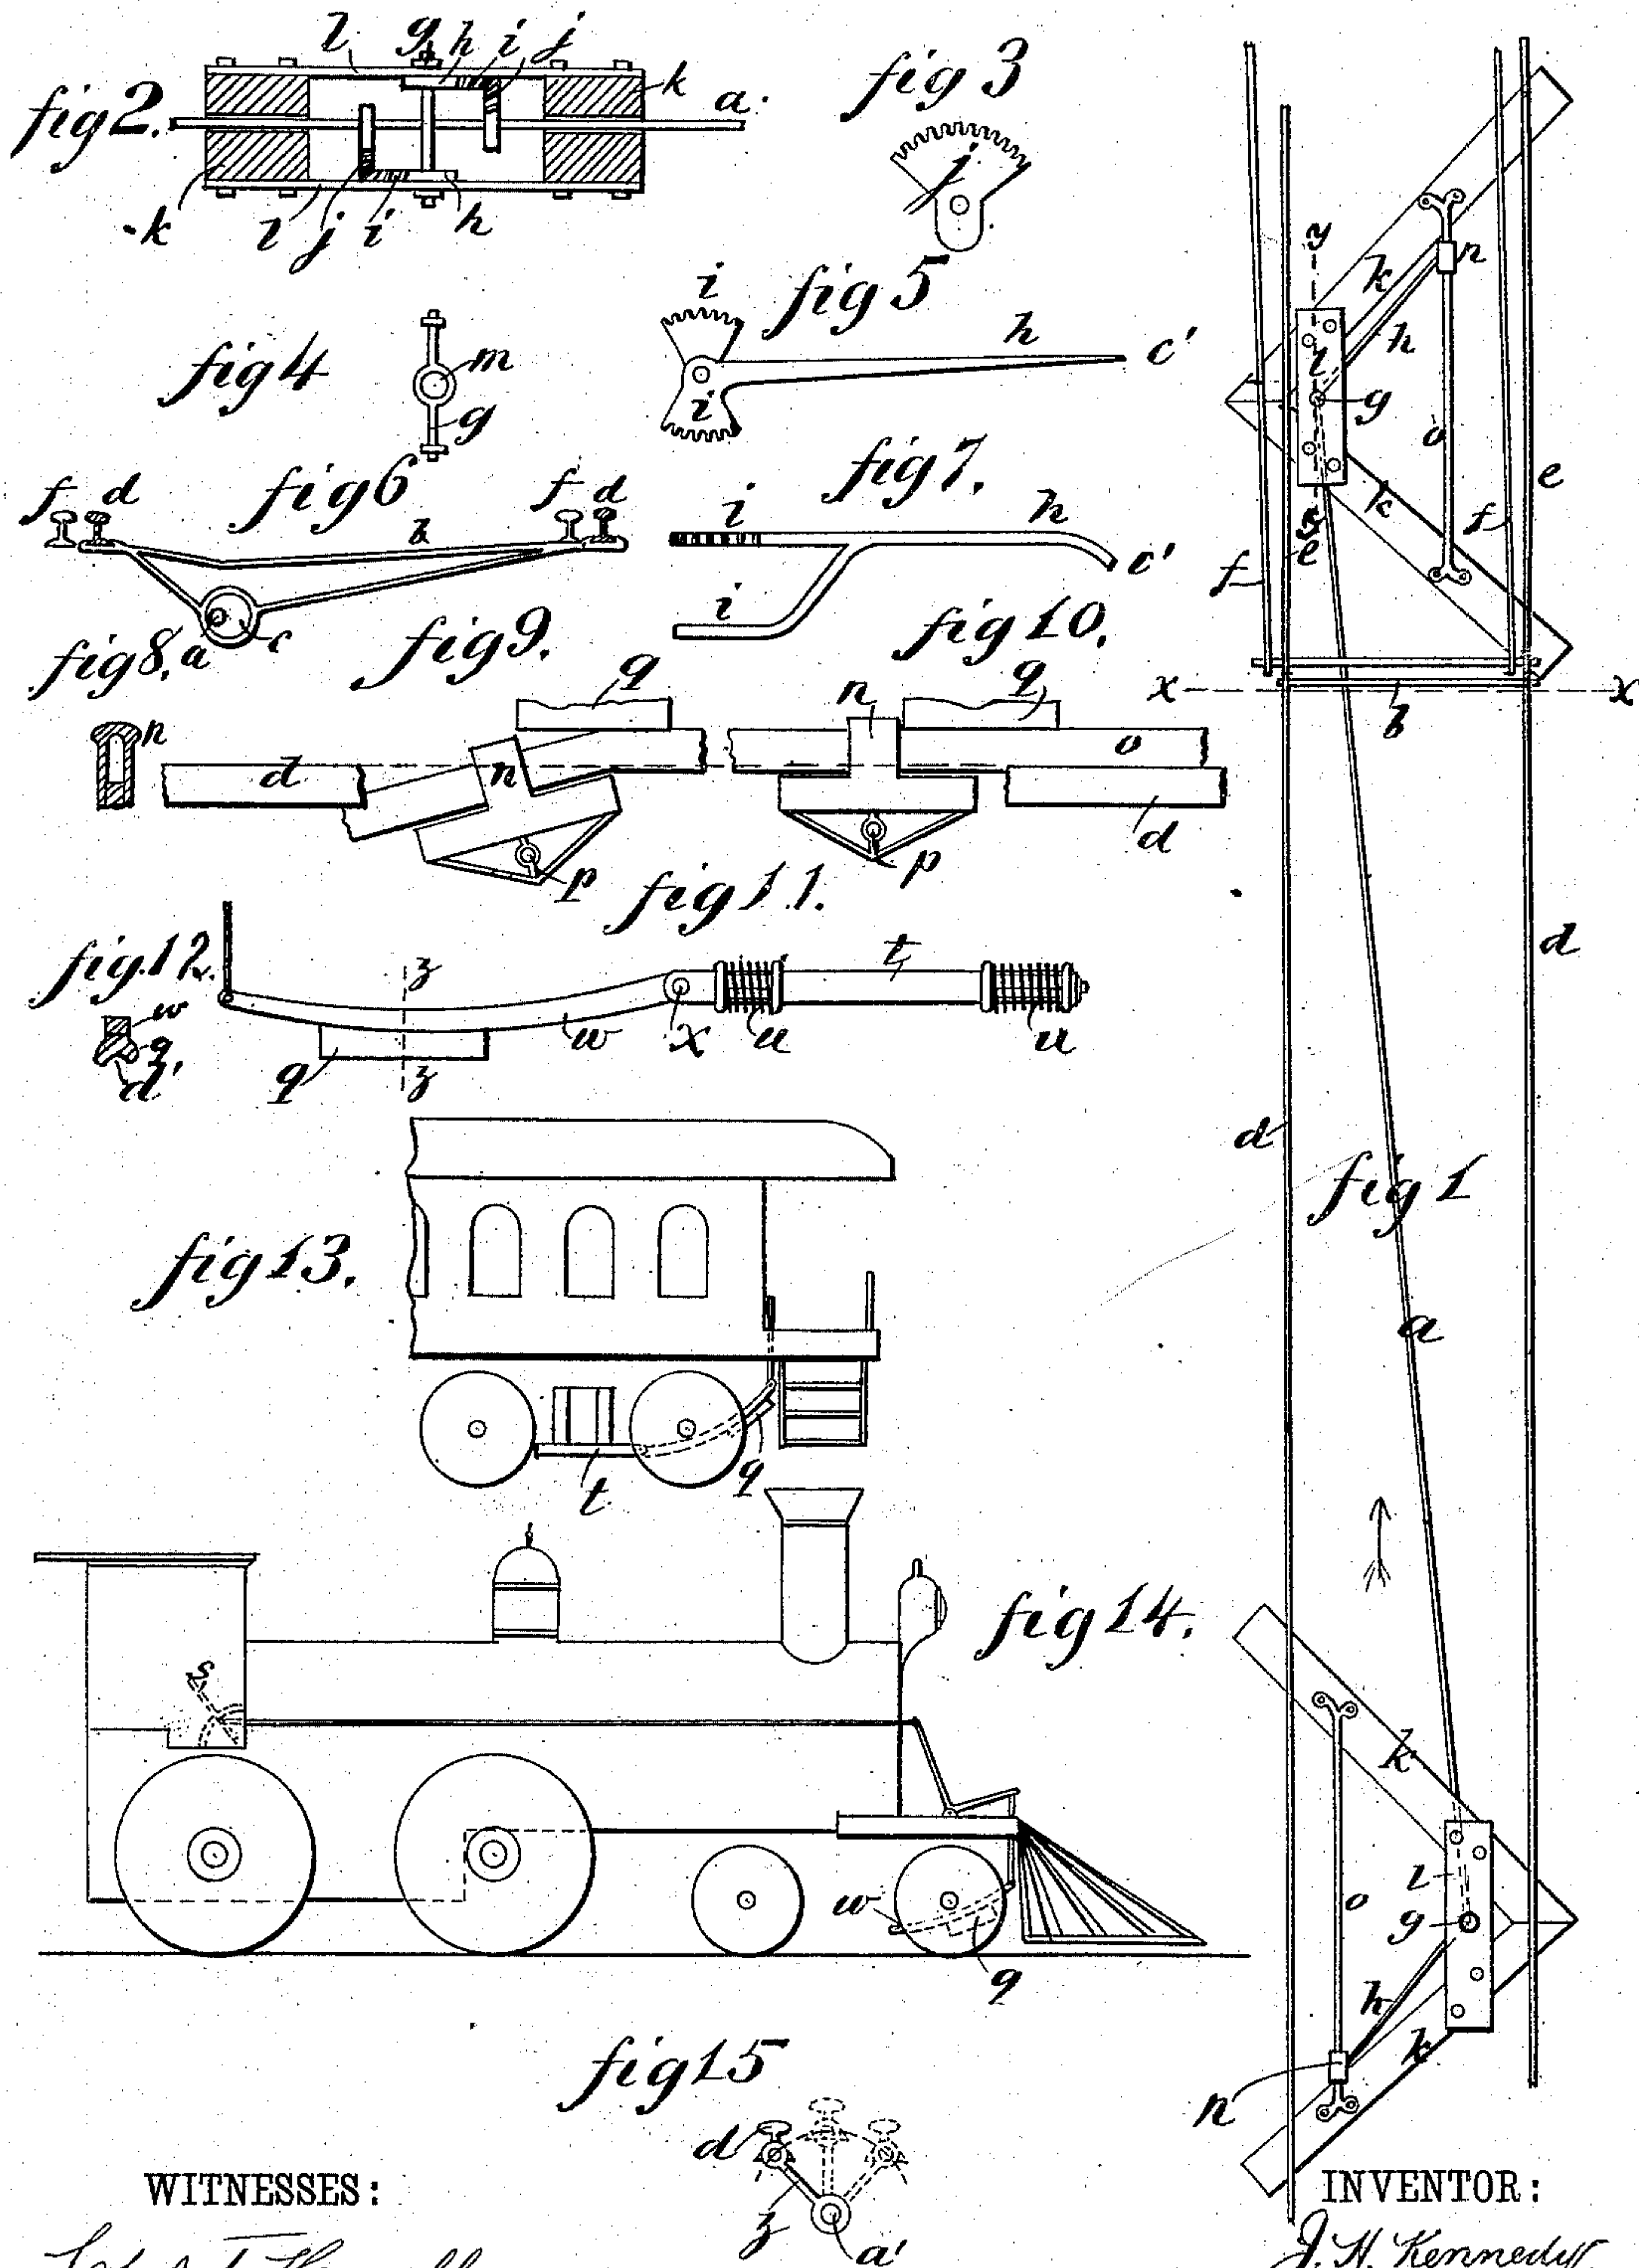 fig 2.
l g h i j
k
a
k l j i h
fig 3
j
fig 4
m
g
fig 5
i h c'
i
fig 6
f d b f d
a c
fig 7.
i h
c'
i
fig 8.
n
fig 9.
q
d n
p
fig 10.
n q
o
d
p
fig 11.
z t
q z w x u u
fig. 12.
w
q
d'
fig 13.
t q
fig 14.
s
w
q
fig 15
d
z
a'
fig 1
y
n
k
h
l
g
o
e
k
z
e
f
f
x x
b
d
d
a
k
l
o
g
h
k
n
WITNESSES:
INVENTOR:
J. H. Kennedy